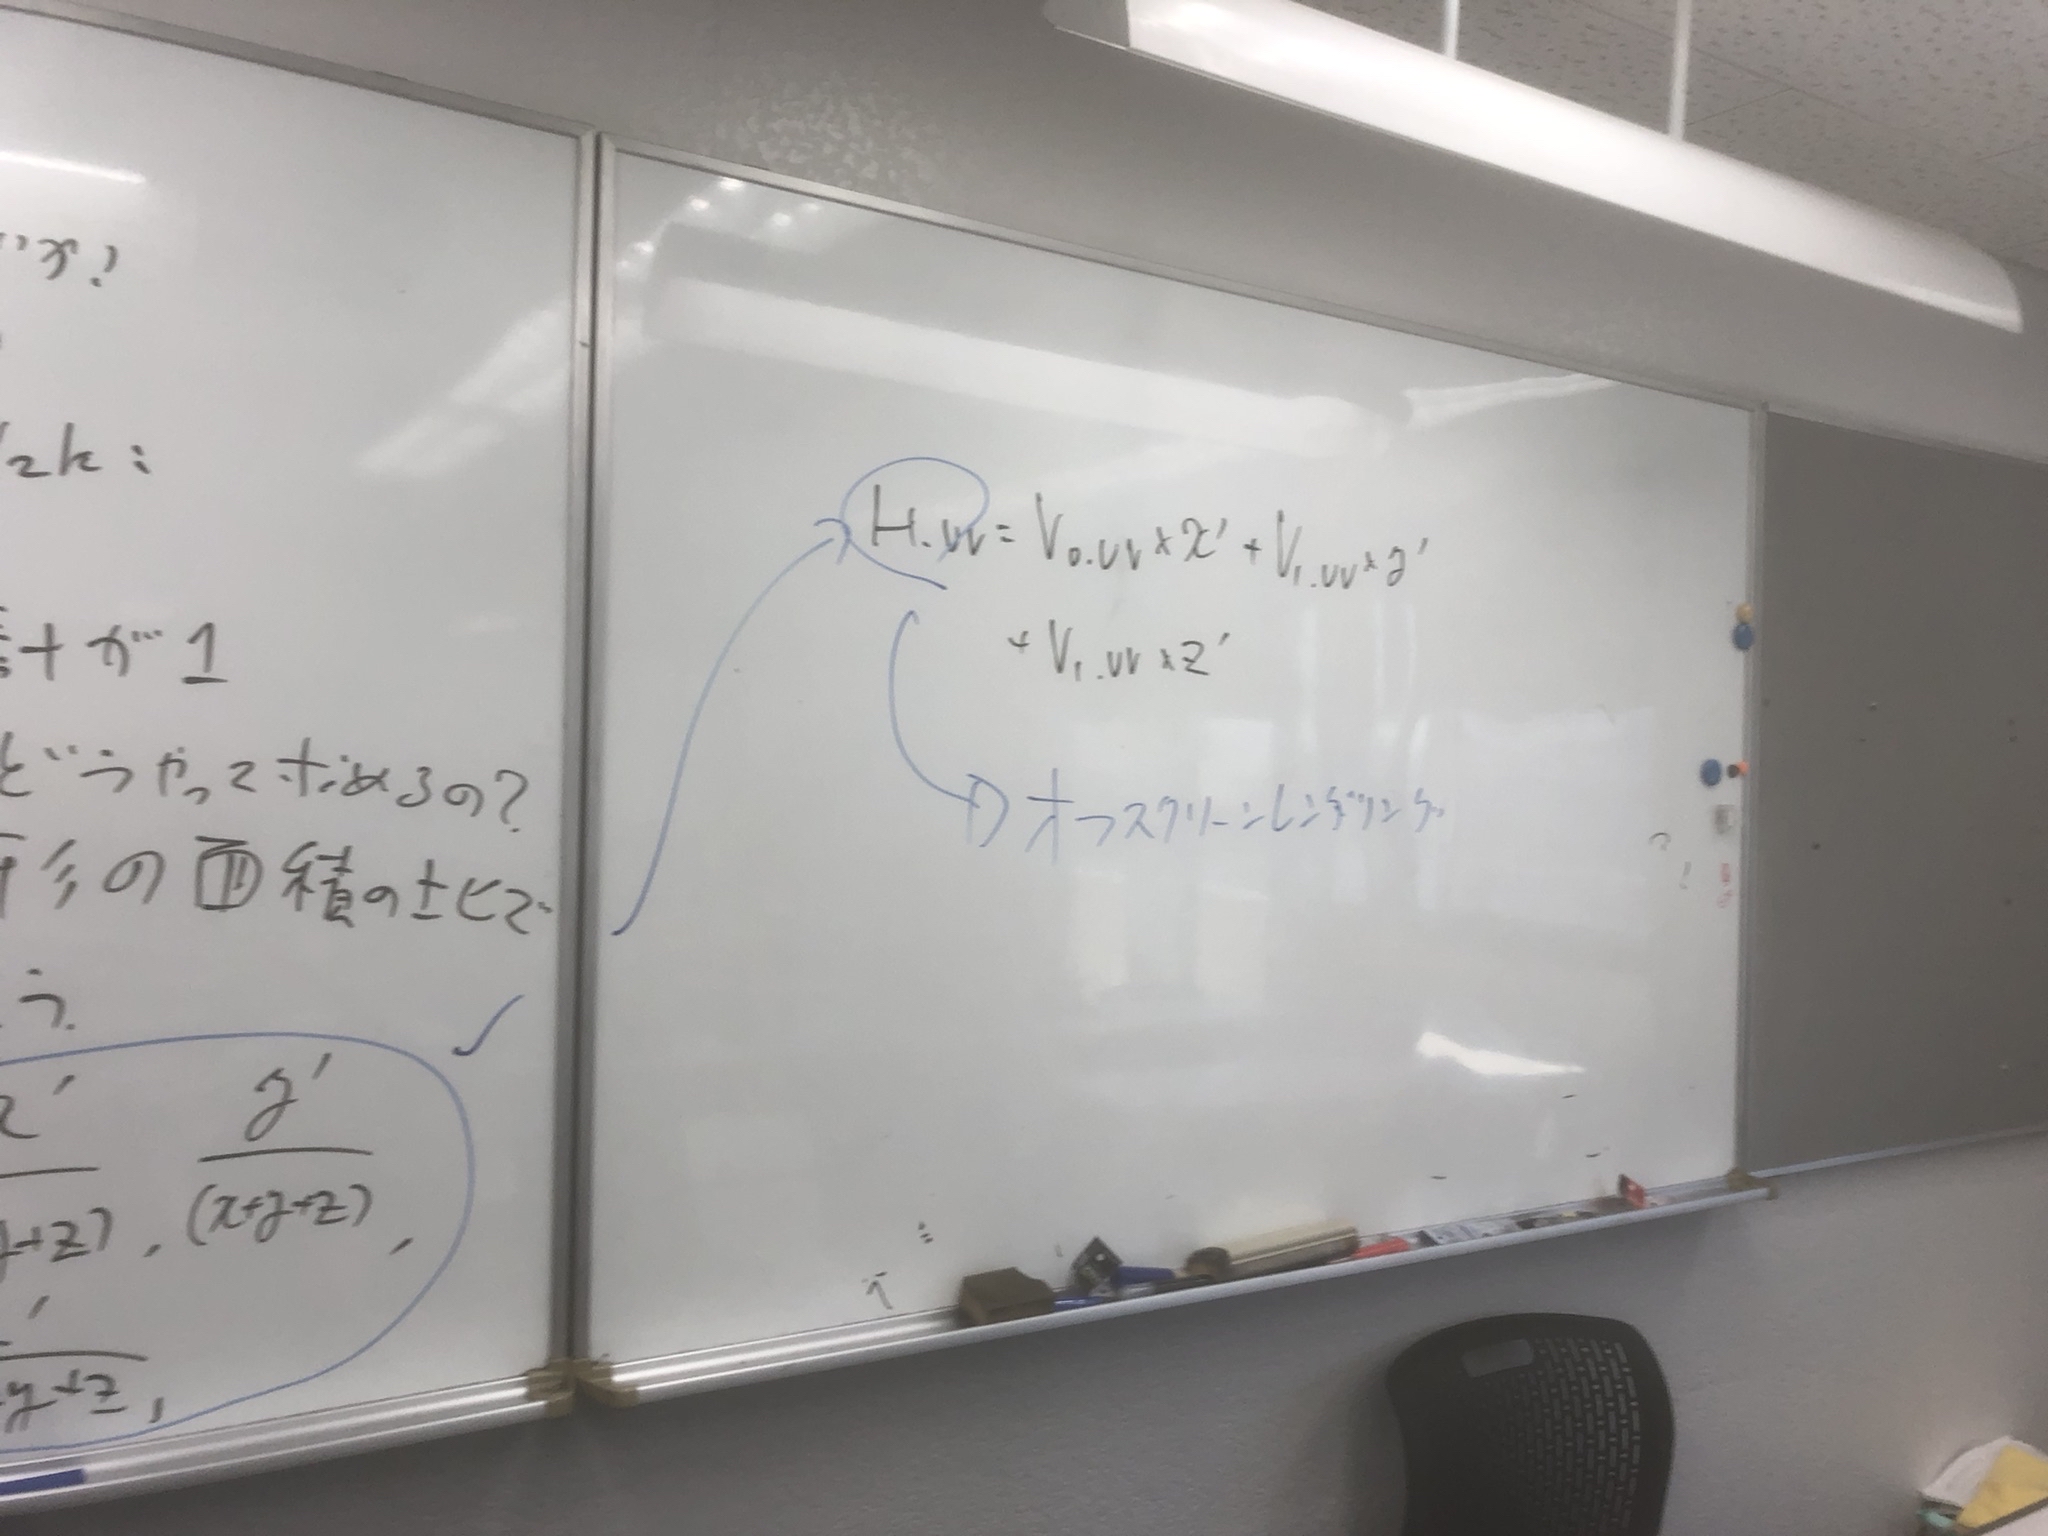 が?
2k:
計が1
どうやって求めるの?
形の面積の比で
う.
x' y'
+z), (x+y+z),
y+z,
H.uv = V0.uv * x' + V1.uv * y'
+ V1.uv * z'
オフスクリーンレンダリング